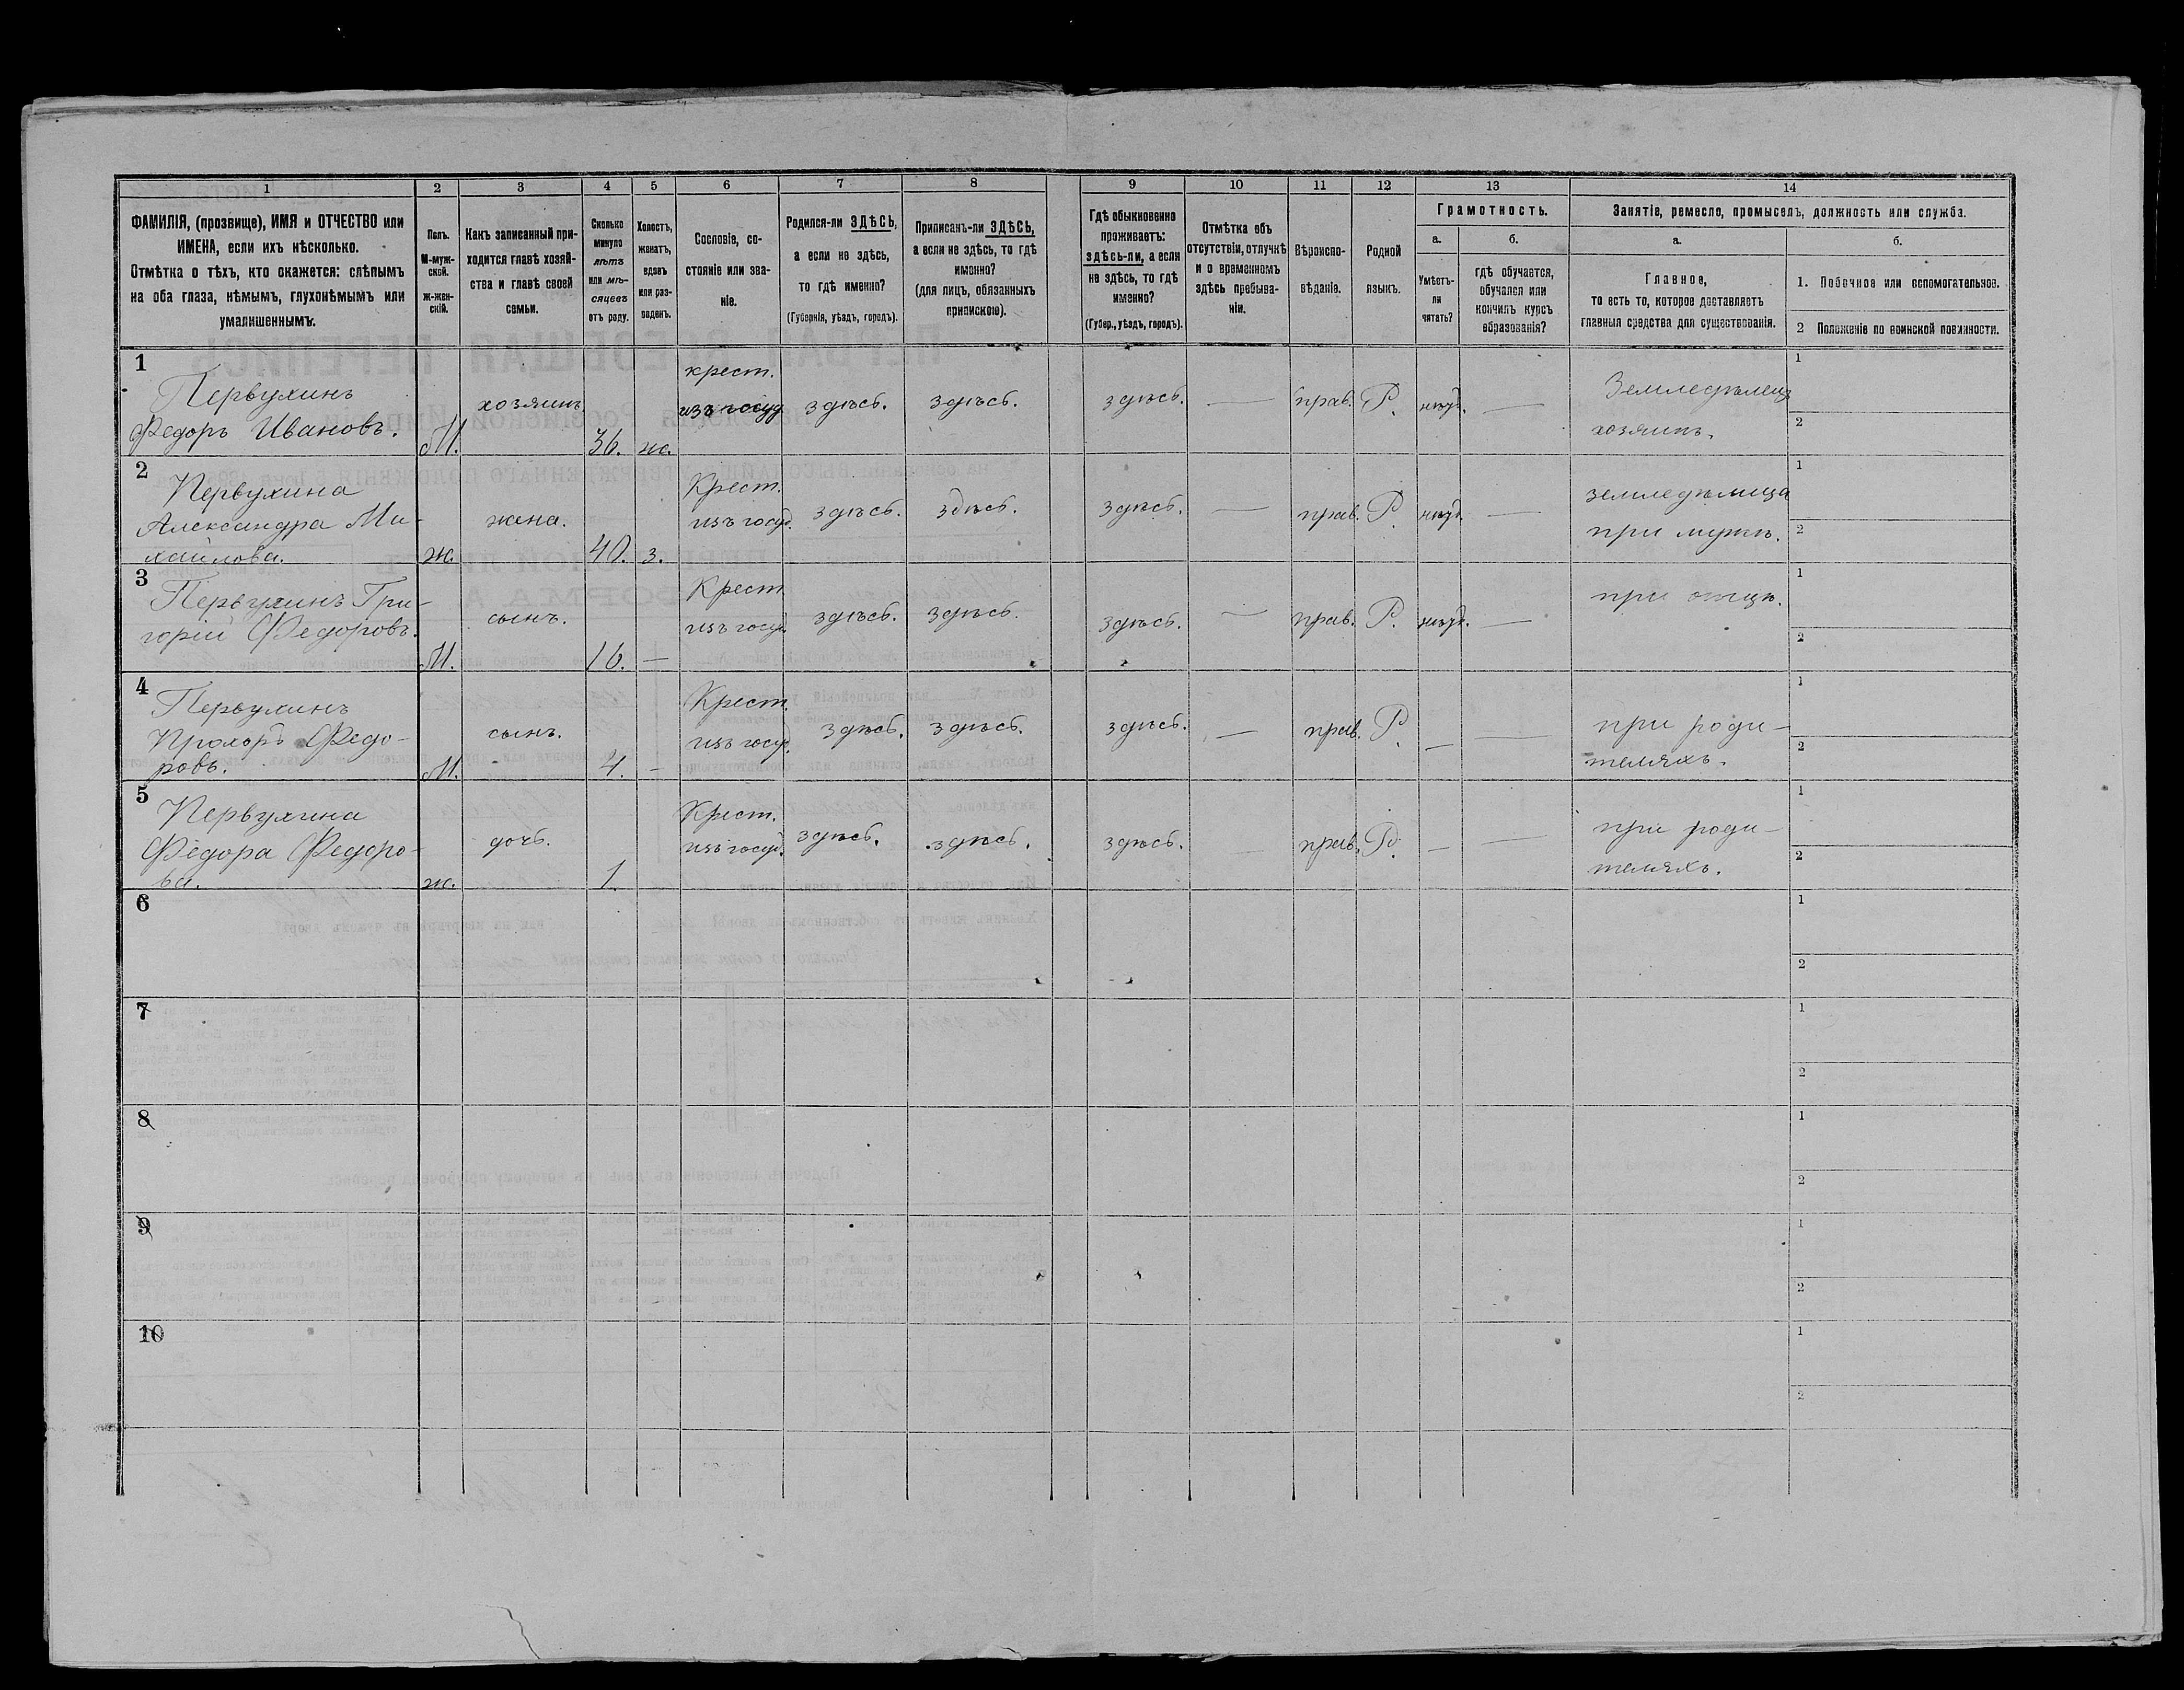 1 2 3 4 5 6 7 8 9 10 11 12 13 14
ФАМИЛІЯ, (прозвище), ИМЯ и ОТЧЕСТВО или
ИМЕНА, если ихъ нѣсколько.
Отмѣтка о тѣхъ, кто окажется: слѣпымъ
на оба глаза, нѣмымъ, глухонѣмымъ или
умалишеннымъ.
Полъ.
М-муж-
ской.
ж-жен-
скій.
Какъ записанный при-
ходится главѣ хозяй-
ства и главѣ своей
семьи.
Сколько
минуло
лѣтъ
или мѣ-
сяцевъ
отъ роду.
Холостъ,
женатъ,
вдовъ
или раз-
веденъ.
Сословіе, со-
стояніе или зва-
ніе.
Родился-ли ЗДѢСЬ,
а если не здѣсь,
то гдѣ именно?
(Губернія, уѣздъ, городъ).
Приписанъ-ли ЗДѢСЬ,
а если не здѣсь, то гдѣ
именно?
(для лицъ, обязанныхъ
припискою).
Гдѣ обыкновенно
проживаетъ:
здѣсь-ли, а если
не здѣсь, то гдѣ
именно?
(Губер., уѣздъ, городъ).
Отмѣтка объ
отсутствіи, отлучкѣ
и о временномъ
здѣсь пребыва-
ніи.
Вѣроиспо-
вѣданіе.
Родной
языкъ.
Грамотность.
а.
Умѣетъ-
ли
читать?
б.
гдѣ обучается,
обучался или
кончилъ курсъ
образованія?
Занятіе, ремесло, промыселъ, должность или служба.
а.
Главное,
то есть то, которое доставляетъ
главныя средства для существованія.
б.
1. Побочное или вспомогательное.
2 Положеніе по воинской повинности.
1
Первухинъ
Федоръ Ивановъ.
М.
хозяинъ
36.
ж.
крест.
изъ госуд.
здѣсь.
здѣсь.
здѣсь.
—
прав.
Р.
—
Земледѣлецъ
хозяинъ.
1
2
2
Первухина
Александра Ми-
хайлова.
ж.
жена.
40.
з.
Крест.
изъ госуд.
здѣсь.
здѣсь.
здѣсь.
—
прав.
Р.
—
земледѣлица
при мужѣ.
1
2
3
Первухинъ Гри-
горій Федоровъ.
М.
сынъ.
16.
—
Крест.
изъ госуд.
здѣсь.
здѣсь.
здѣсь.
—
прав.
Р.
—
при отцѣ.
1
2
4
Первухинъ
Прохоръ Федо-
ровъ.
М.
сынъ.
4.
—
Крест.
изъ госуд.
здѣсь.
здѣсь.
здѣсь.
—
прав.
Р.
—
—
при роди-
теляхъ.
1
2
5
Первухина
Федора Федоро-
ва.
ж.
дочь.
1.
Крест.
изъ госуд.
здѣсь.
здѣсь.
здѣсь.
—
прав.
Р.
—
—
при роди-
теляхъ.
1
2
6
1
2
7
1
2
8
1
2
9
1
2
10
1
2